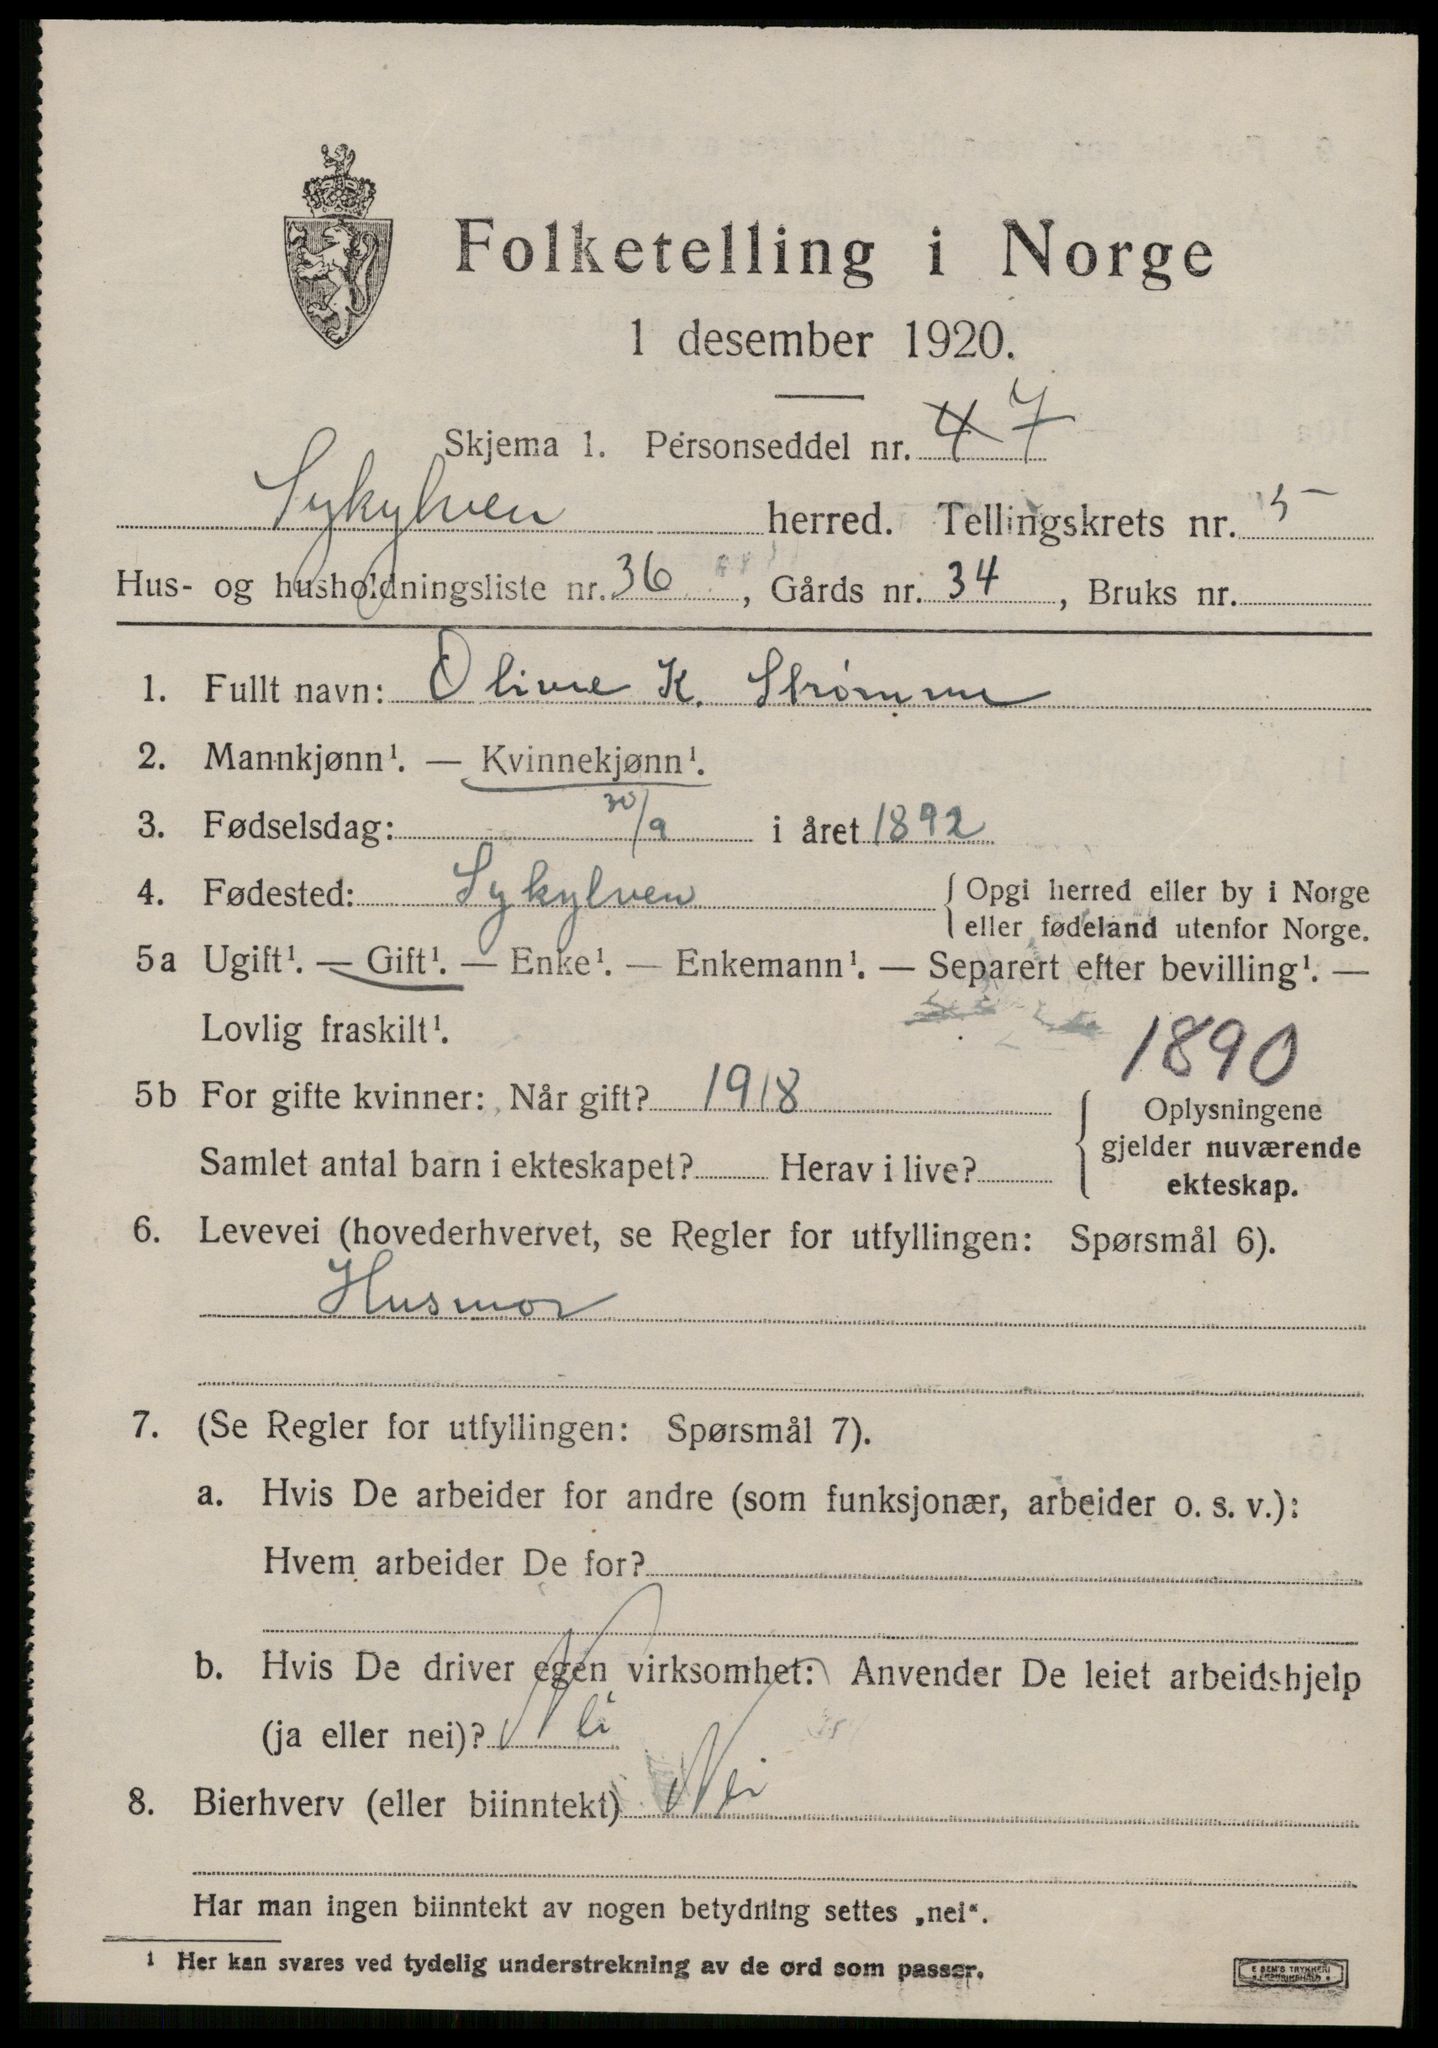 Folketelling i Norge
1 desember 1920.
Skjema 1. Personseddel nr. 4 7
Sykylven herred. Tellingskrets nr. 5
Hus- og husholdningsliste nr. 36, Gårds nr. 34, Bruks nr.
1. Fullt navn: Olivie K. Strømme
2. Mannkjønn¹. — Kvinnekjønn¹.
3. Fødselsdag: 30/9 i året 1892
4. Fødested: Sykylven { Opgi herred eller by i Norge
eller fødeland utenfor Norge.
5a Ugift¹. — Gift¹. — Enke¹. — Enkemann¹. — Separert efter bevilling¹. —
Lovlig fraskilt¹.
1890
5b For gifte kvinner: Når gift? 1918
Samlet antal barn i ekteskapet? Herav i live?
{ Oplysningene
gjelder nuværende
ekteskap.
6. Levevei (hovederhvervet, se Regler for utfyllingen: Spørsmål 6).
Husmor
7. (Se Regler for utfyllingen: Spørsmål 7).
a. Hvis De arbeider for andre (som funksjonær, arbeider o. s. v.):
Hvem arbeider De for?
b. Hvis De driver egen virksomhet: Anvender De leiet arbeidshjelp
(ja eller nei)? Nei
8. Bierhverv (eller biinntekt) Nei
Har man ingen biinntekt av nogen betydning settes „nei“.
¹ Her kan svares ved tydelig understrekning av de ord som passer.